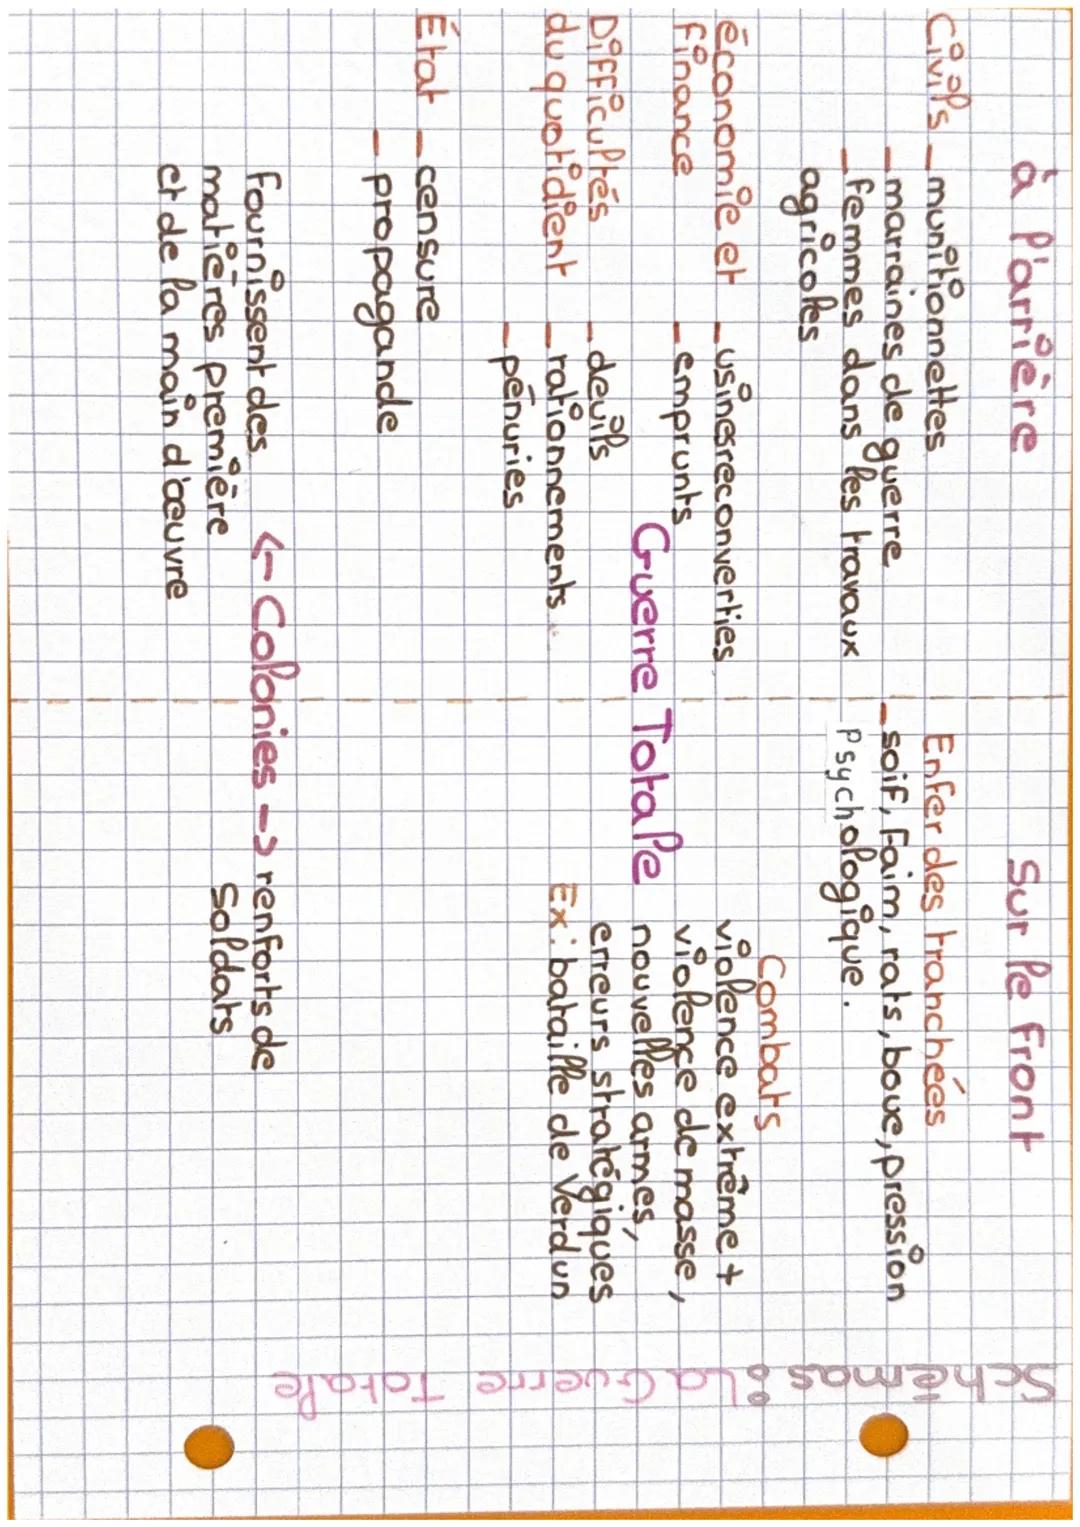 Schémas : La Guerre Totale
à l'arrière
Civils – munitionnettes
– marraines de guerre
– femmes dans les travaux
agricoles
économie et – usines reconverties
finance – emprunts
Difficultés – deuils
du quotidient – rationnements
– pénuries
État – censure
– propagande
Guerre Totale
sur le front
Enfer des tranchées
– soif, faim, rats, boue, pression
psychologique.
Combats
violence extrême +
violence de masse,
nouvelles armes,
erreurs stratégiques
Ex: bataille de Verdun
fournissent des
matières première
et de la main d'œuvre
← Colonies → renforts de
soldats